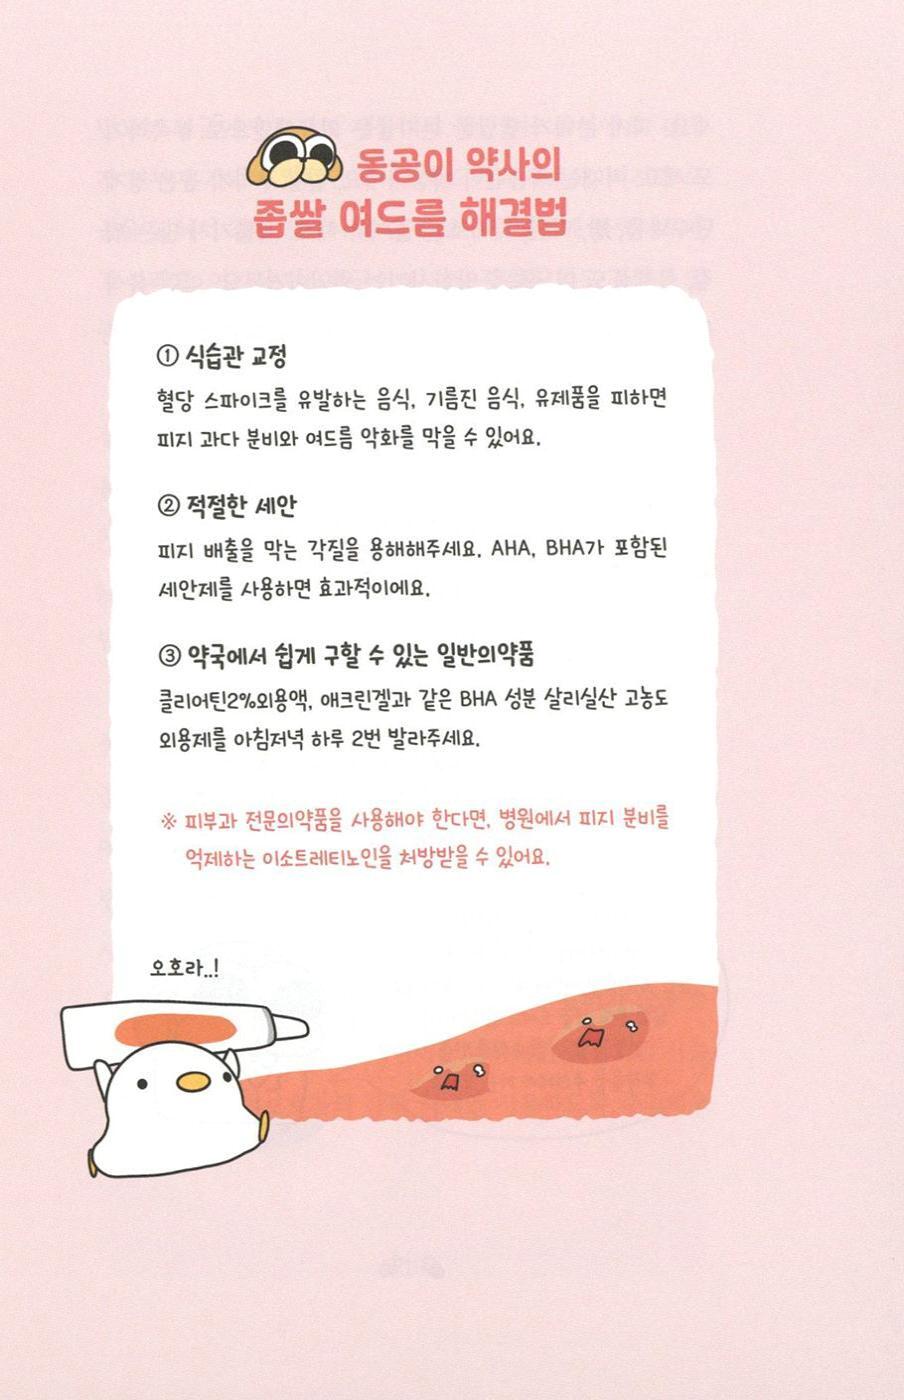 동공이 약사의
좁쌀 여드름 해결법
① 식습관 교정
혈당 스파이크를 유발하는 음식, 기름진 음식, 유제품을 피하면
피지 과다 분비와 여드름 악화를 막을 수 있어요.
② 적절한 세안
피지 배출을 막는 각질을 용해해주세요. AHA, BHA가 포함된
세안제를 사용하면 효과적이에요.
③ 약국에서 쉽게 구할 수 있는 일반의약품
클리어틴2%외용액, 애크린겔과 같은 BHA 성분 살리실산 고농도
외용제를 아침저녁 하루 2번 발라주세요.
※ 피부과 전문의약품을 사용해야 한다면, 병원에서 피지 분비를
억제하는 이소트레티노인을 처방받을 수 있어요.
오호라..!